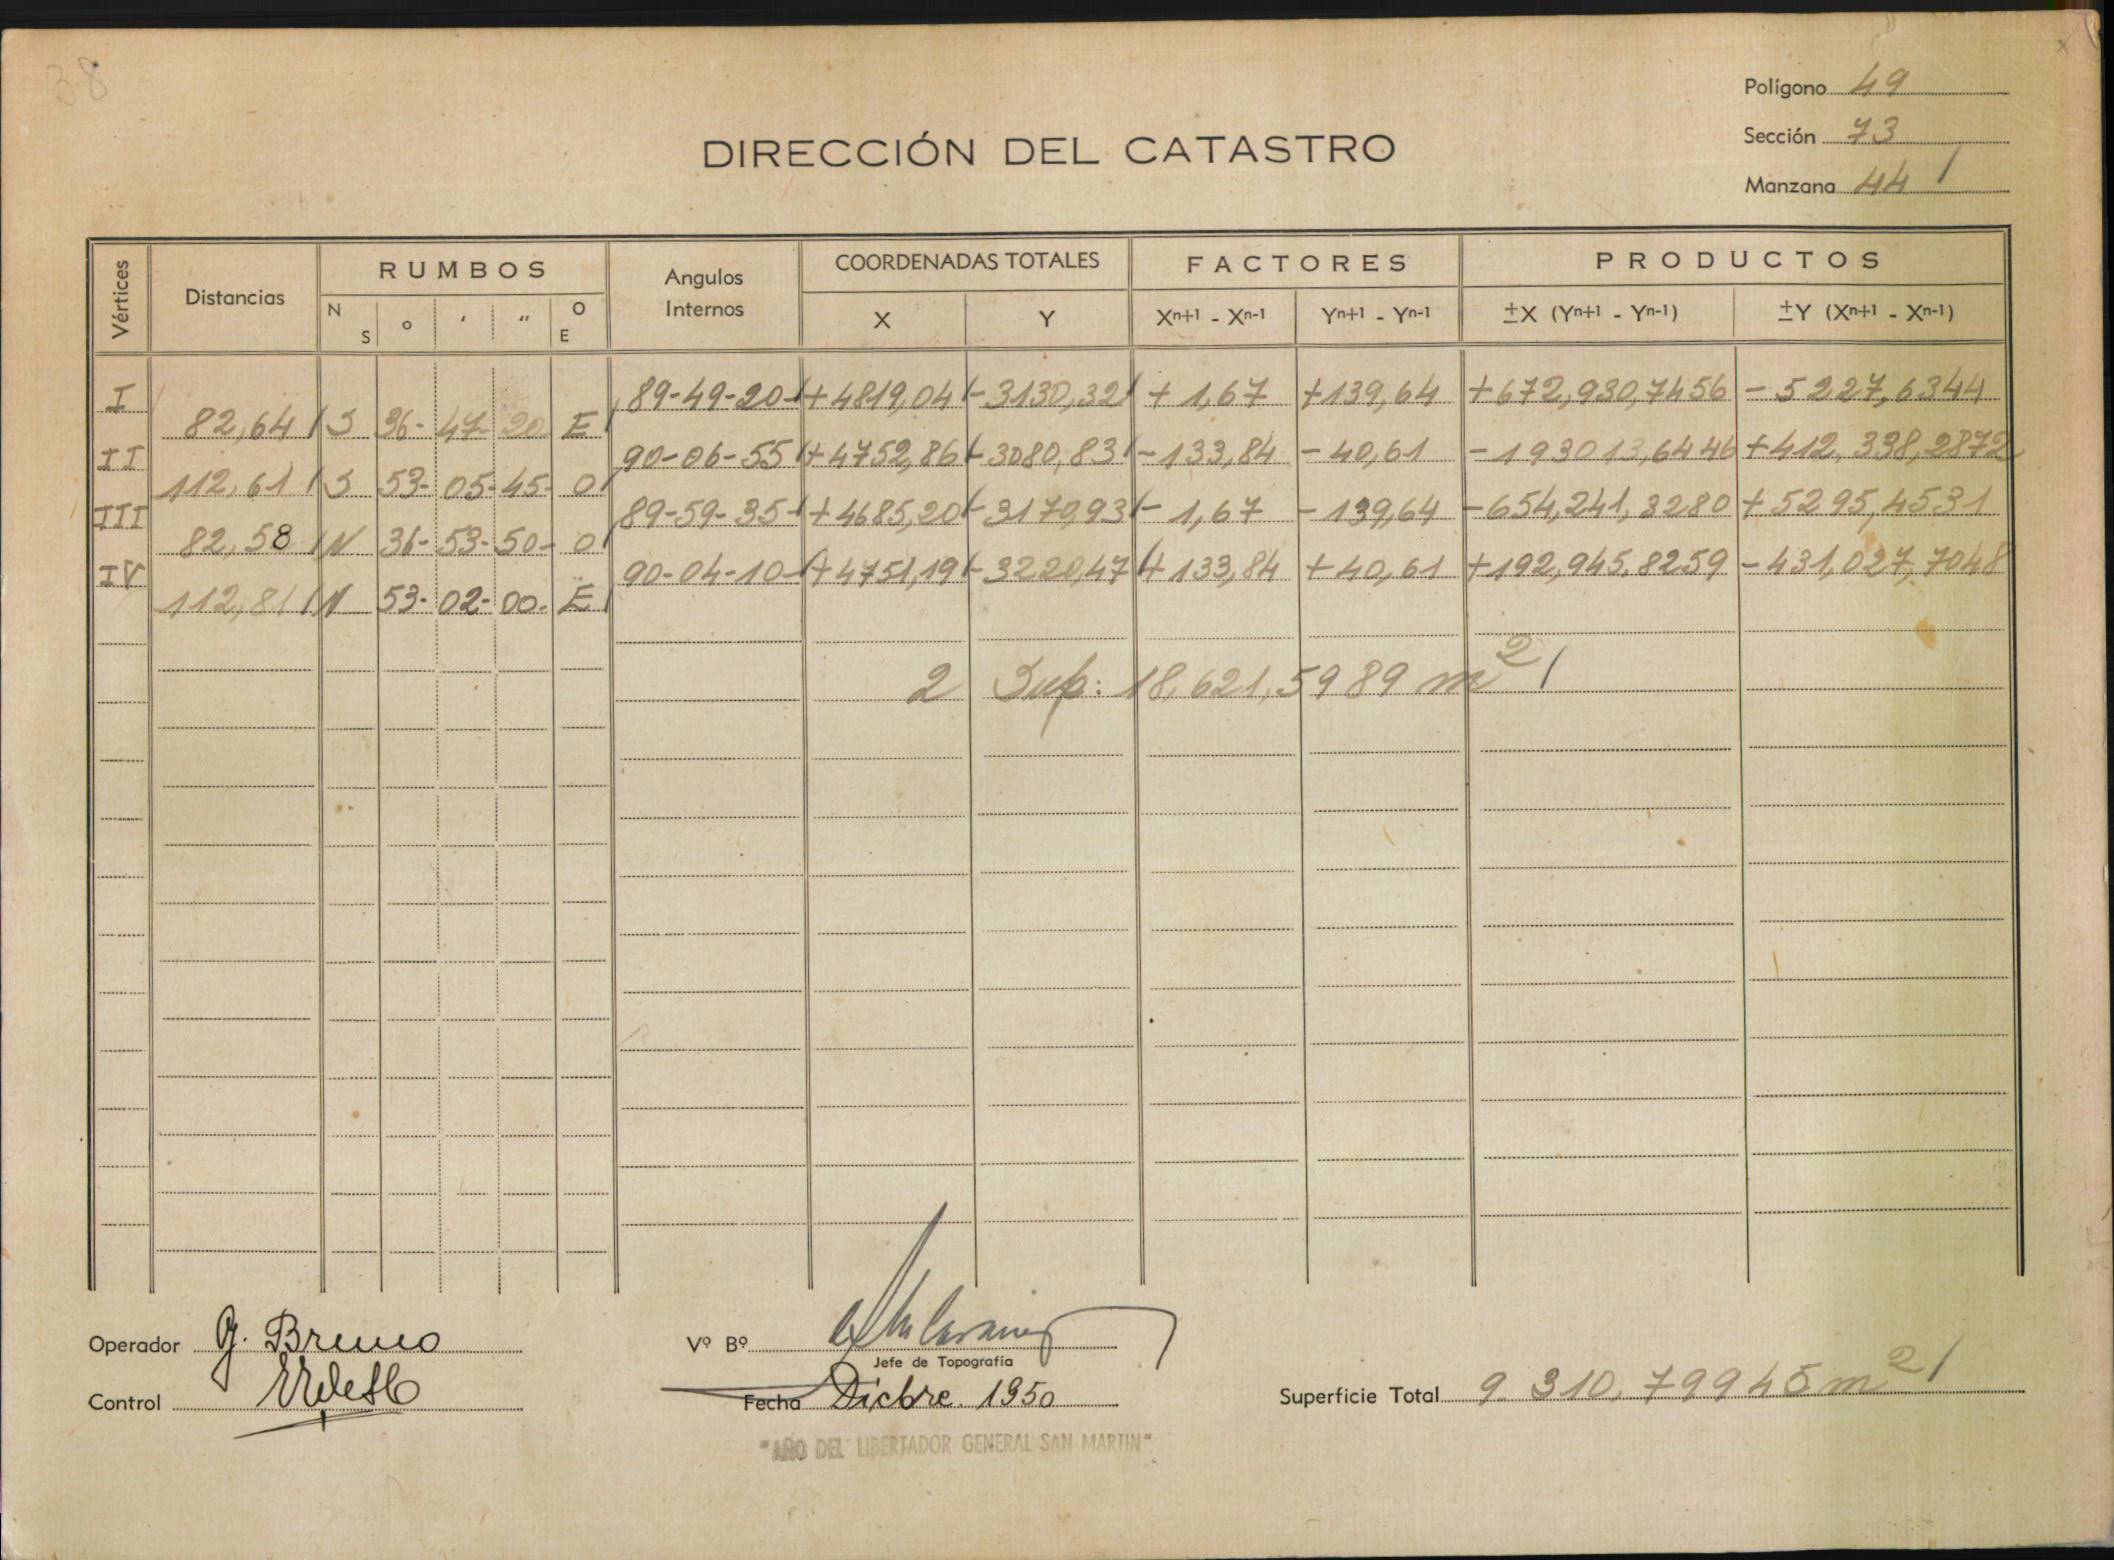 38
Polígono 49
Sección 73
Manzana 44
DIRECCIÓN DEL CATASTRO
Vértices Distancias RUMBOS Angulos Internos COORDENADAS TOTALES FACTORES PRODUCTOS
N S o ′ ″ O E X Y Xn+1 - Xn-1 Yn+1 - Yn-1 ±X (Yn+1 - Yn-1) ±Y (Xn+1 - Xn-1)
I 89-49-20 +4819,04 -3130,32 +1,67 +139,64 +672,930,7456 -5227,6344
82,64 S 36-47-20 E
II 90-06-55 +4752,86 -3080,83 -133,84 -40,61 -193013,6446 +412,338,2872
112,61 S 53-05-45- O
III 89-59-35 +4685,20 -3170,93 -1,67 -139,64 -654,241,3280 +5295,4531
82,58 N 36-53-50- O
IV 90-04-10 +4751,19 -3220,47 +133,84 +40,61 +192,945,8259 -431,027,7048
112,81 N 53-02-00- E
2 Sup: 18,621,5989 m2
Operador G. Bruno
Control
Vº Bº
Jefe de Topografía
Fecha Dicbre. 1950
Superficie Total 9.310,79945 m2
"AÑO DEL LIBERTADOR GENERAL SAN MARTIN"